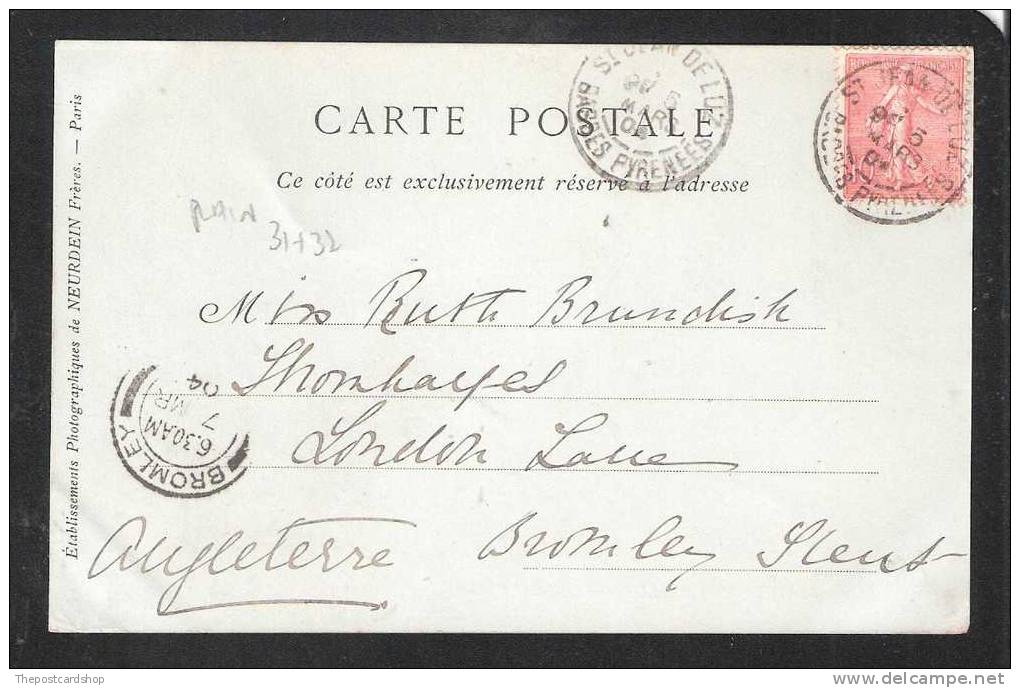 CARTE POSTALE
Ce côté est exclusivement réservé à l'adresse
PLAIN
31+32
Miss Ruth Brundish
Thornhayes
London Lane
Bromley Kent
Angleterre
Établissements Photographiques de NEURDEIN Frères. — Paris
ST JEAN DE LUZ
5
MARS
04
BASSES PYRENEES
ST JEAN DE LUZ
5
MARS
BASSES PYRENEES
BROMLEY
6.30AM
7 MR
04
Thepostcardshop
delcampe.net